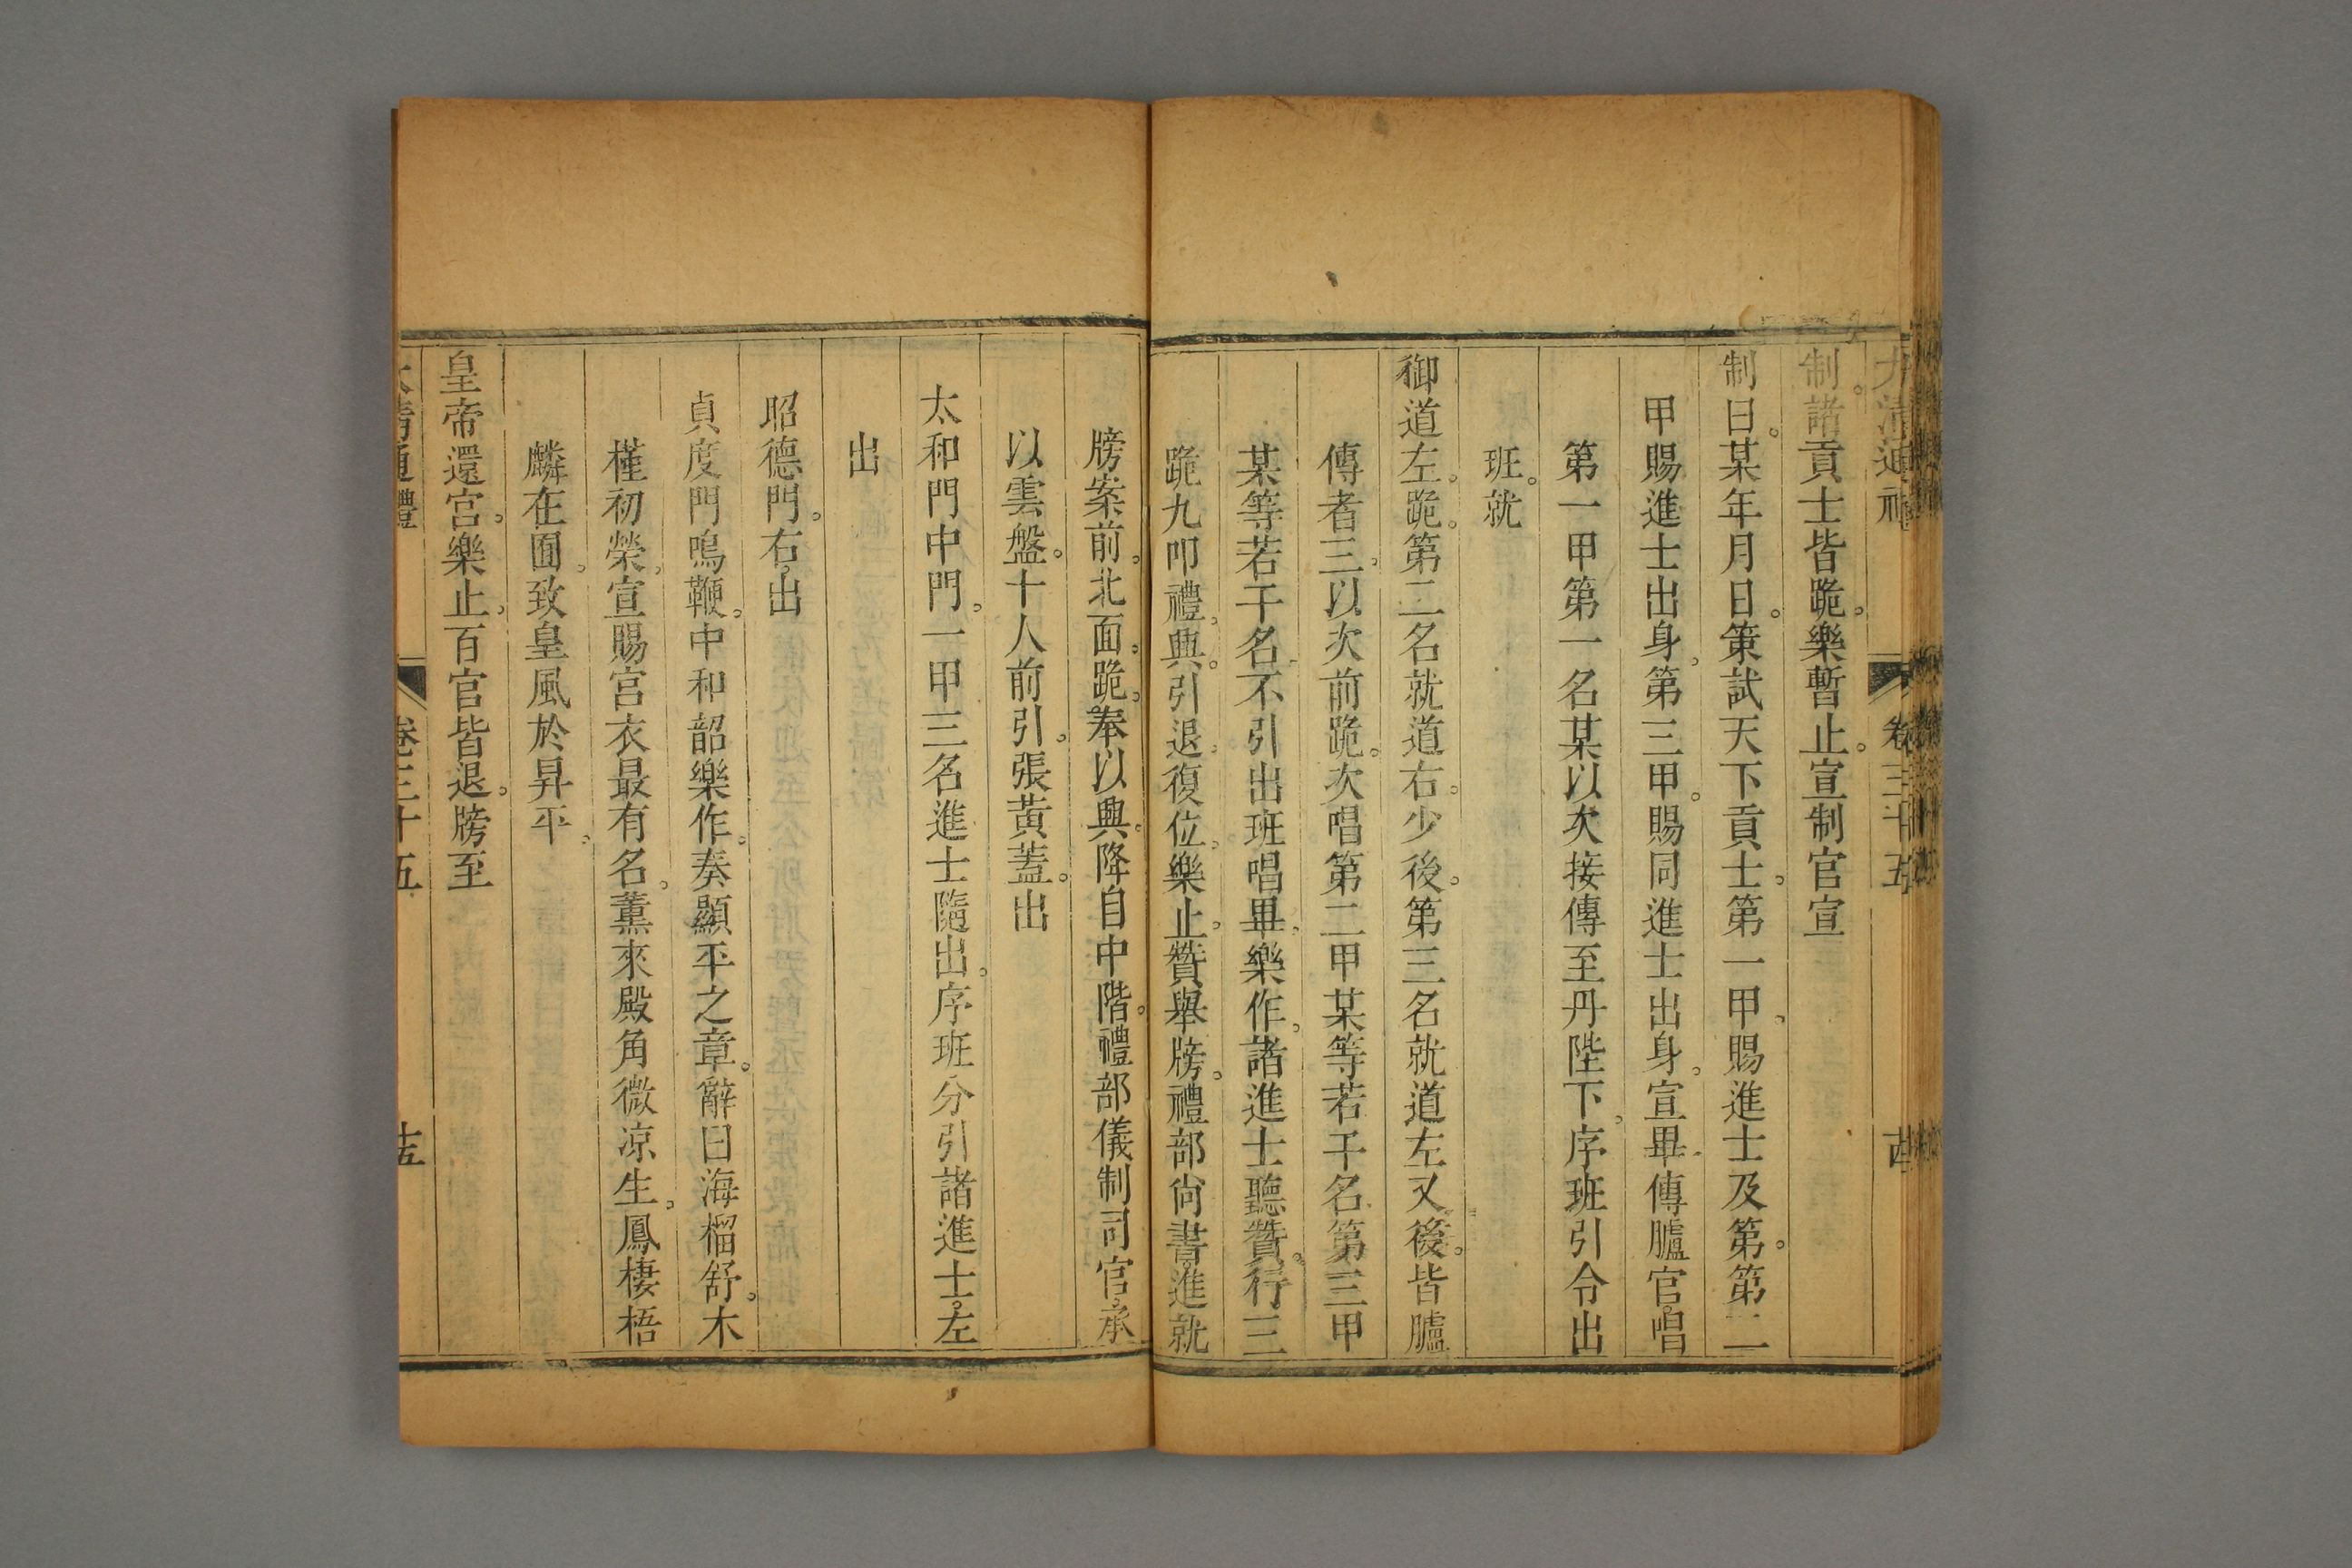 大清通禮 卷三十五 十四
制。諸貢士皆跪。樂暫止。宣制官宣
制曰。某年月日。策試天下貢士。第一甲。賜進士及第。第二
甲賜進士出身。第三甲。賜同進士出身。宣畢。傳臚官。唱
第一甲第一名某以次接傳至丹陛下。序班引令出
班。就
御道左。跪。第二名就道右。少後。第三名就道左又後。皆臚
傳者三。以次前跪。次唱第二甲某等若干名第三甲
某等若干名。不引出班唱畢。樂作。諸進士聽贊。行三
跪九叩禮。興。引退。復位。樂止。贊舉牓。禮部尚書。進就
牓案前。北面。跪。奉以興。降自中階。禮部儀制司官。承
以雲盤。十人前引。張黃蓋。出
太和門中門。一甲三名進士隨出。序班分引諸進士。左
出
昭德門。右。出
貞度門鳴鞭。中和韶樂作。奏顯平之章。辭曰海榴舒。木
槿初榮。宣賜宮衣最有名。薰來殿角微凉生。鳳棲梧
麟在囿。致皇風於昇平。
皇帝還宮。樂止。百官皆退。牓至
大清通禮 卷三十五 十五